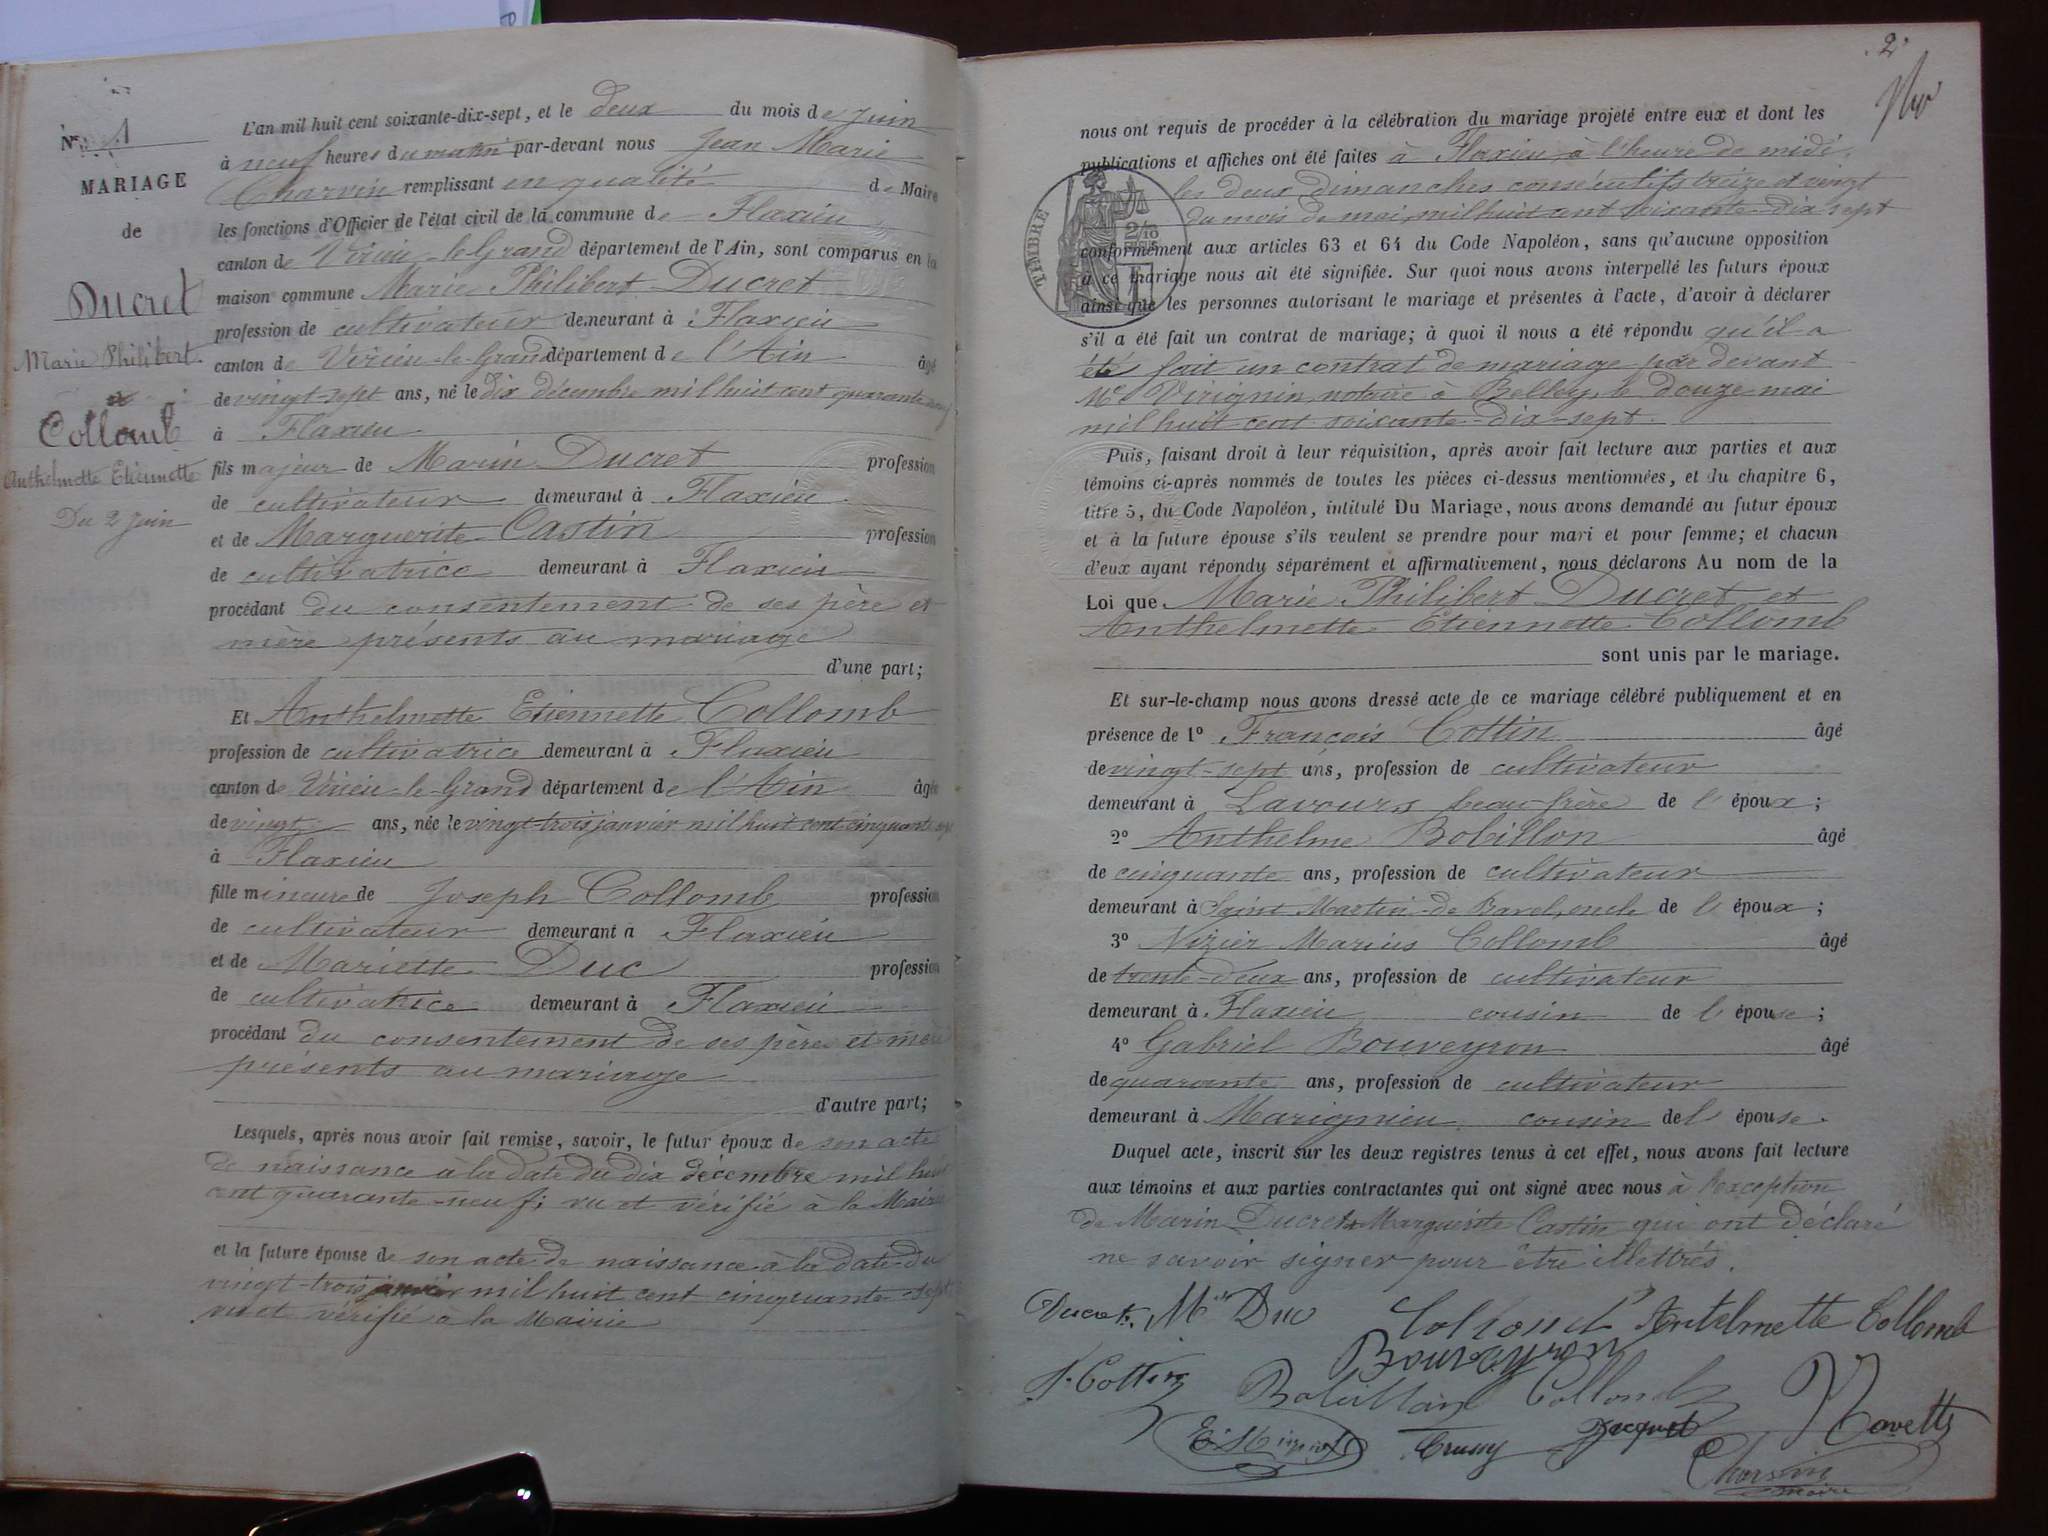 N.º 1
MARIAGE
de
Ducret
Marie Philibert
et
Collomb
Anthelmette Etiennette
Du 2 Juin
L'an mil huit cent soixante-dix-sept, et le deux du mois de Juin
à neuf heures du matin par-devant nous Jean Marie
Charvin remplissant en qualité de Maire
les fonctions d'Officier de l'état civil de la commune de Flaxieu
canton de Virieu-le-Grand département de l'Ain, sont comparus en la
maison commune Marie Philibert Ducret
profession de cultivateur demeurant à Flaxieu
canton de Virieu-le-Grand département de l'Ain âgé
de vingt-sept ans, né le dix décembre mil huit cent quarante neuf
à Flaxieu
fils majeur de Marin Ducret profession
de cultivateur demeurant à Flaxieu
et de Marguerite Castin profession
de cultivatrice demeurant à Flaxieu
procédant du consentement de ses père et
mère présents au mariage
d'une part;
Et Anthelmette Etiennette Collomb
profession de cultivatrice demeurant à Flaxieu
canton de Virieu-le-Grand département de l'Ain âgée
de vingt ans, née le vingt-trois janvier mil huit cent cinquante sept
à Flaxieu
fille mineure de Joseph Collomb profession
de cultivateur demeurant à Flaxieu
et de Mariette Duc profession
de cultivatrice demeurant à Flaxieu
procédant du consentement de ses père et mère
présents au mariage
d'autre part;
Lesquels, après nous avoir fait remise, savoir, le futur époux de son acte
de naissance à la date du dix décembre mil huit
cent quarante-neuf; vu et vérifié à la Mairie
et la future épouse de son acte de naissance à la date du
vingt-trois janvier mil huit cent cinquante-sept
vu et vérifié à la Mairie
2
nous ont requis de procéder à la célébration du mariage projeté entre eux et dont les
publications et affiches ont été faites à Flaxieu à l'heure de midi
les deux dimanches consécutifs treize et vingt
du mois de mai mil huit cent soixante-dix sept
TIMBRE
2/10
conformément aux articles 63 et 64 du Code Napoléon, sans qu'aucune opposition
à ce mariage nous ait été signifiée. Sur quoi nous avons interpellé les futurs époux
ainsi que les personnes autorisant le mariage et présentes à l'acte, d'avoir à déclarer
s'il a été fait un contrat de mariage; à quoi il nous a été répondu qu'il a
été fait un contrat de mariage par devant
Mᵉ Virignin notaire à Belley, le douze mai
mil huit cent soixante-dix-sept.
Puis, faisant droit à leur réquisition, après avoir fait lecture aux parties et aux
témoins ci-après nommés de toutes les pièces ci-dessus mentionnées, et du chapitre 6,
titre 5, du Code Napoléon, intitulé Du Mariage, nous avons demandé au futur époux
et à la future épouse s'ils veulent se prendre pour mari et pour femme; et chacun
d'eux ayant répondu séparément et affirmativement, nous déclarons Au nom de la
Loi que Marie Philibert Ducret et
Anthelmette Etiennette Collomb
sont unis par le mariage.
Et sur-le-champ nous avons dressé acte de ce mariage célébré publiquement et en
présence de 1º François Cottin âgé
de vingt-sept ans, profession de cultivateur
demeurant à Lavours beau frère de l'époux;
2º Anthelme Bobillon âgé
de cinquante ans, profession de cultivateur
demeurant à Saint Martin-de Bavel, oncle de l'époux;
3º Nizier Marius Collomb âgé
de trente-deux ans, profession de cultivateur
demeurant à Flaxieu cousin de l'épouse;
4º Gabriel Bouveyron âgé
de quarante ans, profession de cultivateur
demeurant à Marignieu cousin de l'épouse.
Duquel acte, inscrit sur les deux registres tenus à cet effet, nous avons fait lecture
aux témoins et aux parties contractantes qui ont signé avec nous à l'exception
de Marin Ducret & Marguerite Castin qui ont déclaré
ne savoir signer pour être illettrés.
Ducret. Duc Antelmette Collomb
Bouveyron
F. Cottin Bobillon Collomb
Jacquet
Charvin
maire